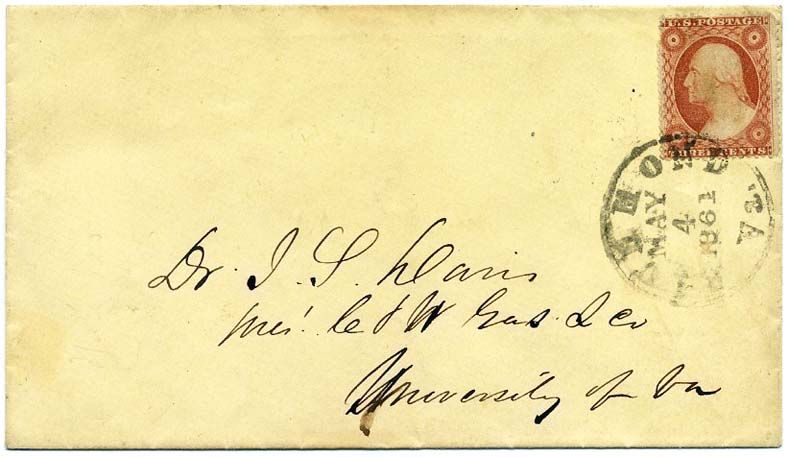 U.S. POSTAGE
THREE CENTS
MOND Va.
MAY
4
1861
Dr. J. S. Davis
pres't. C & U Gas L Co
University of Va